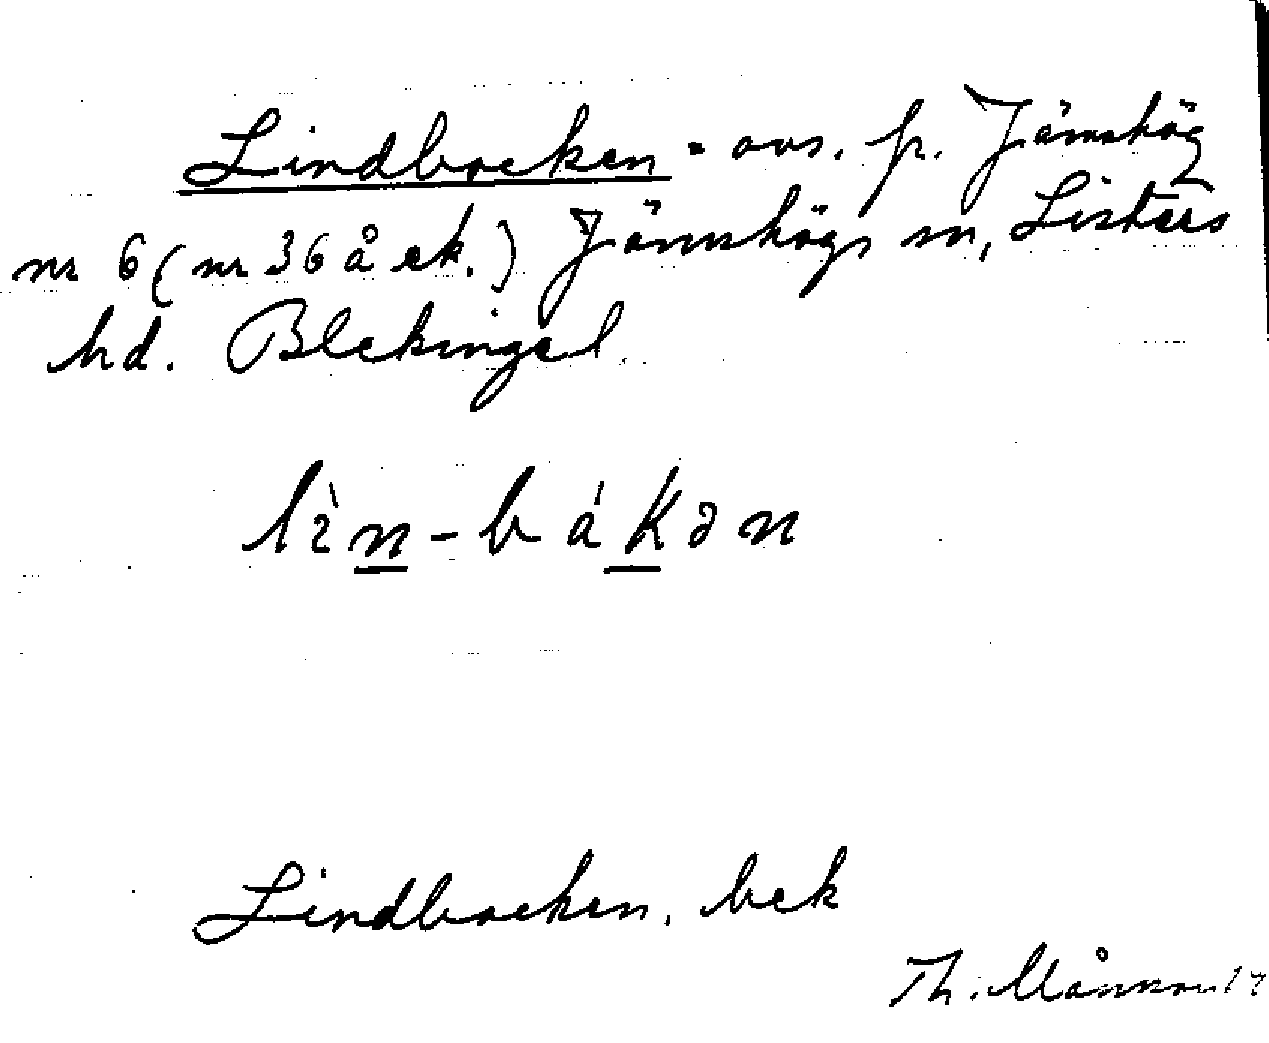 Lindbocken - avs. fr. Jämshög
nr 6 (nr 36 å ek.) Jämshögs sn, Listers
hd. Blekinge l.
lìn-bákən
Lindbocken, bek
Th. Månsson 17